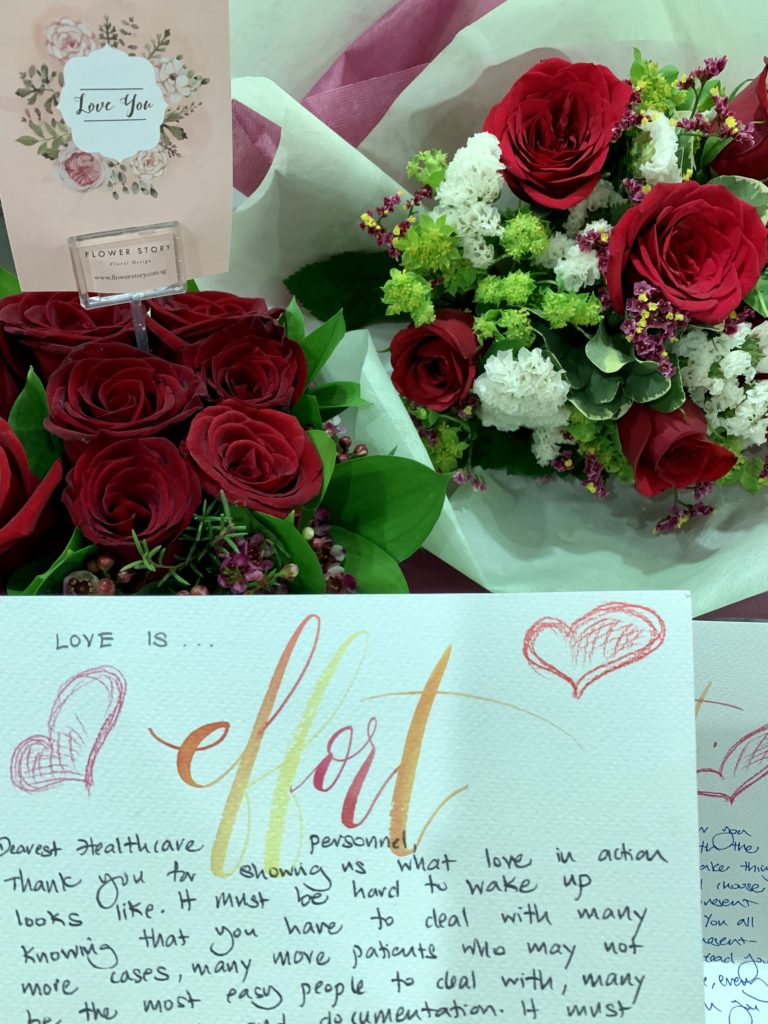 Love You
FLOWER STORY
Floral Design
www.flowerstory.com.sg
LOVE IS...
effort
Dearest Healthcare personnel,
Thank you for showing us what love in action
looks like. It must be hard to wake up
knowing that you have to deal with many
more cases, many more patients who may not
be the most easy people to deal with, many
and documentation. It must
you
the
thin
choose
present
You all
, every
you